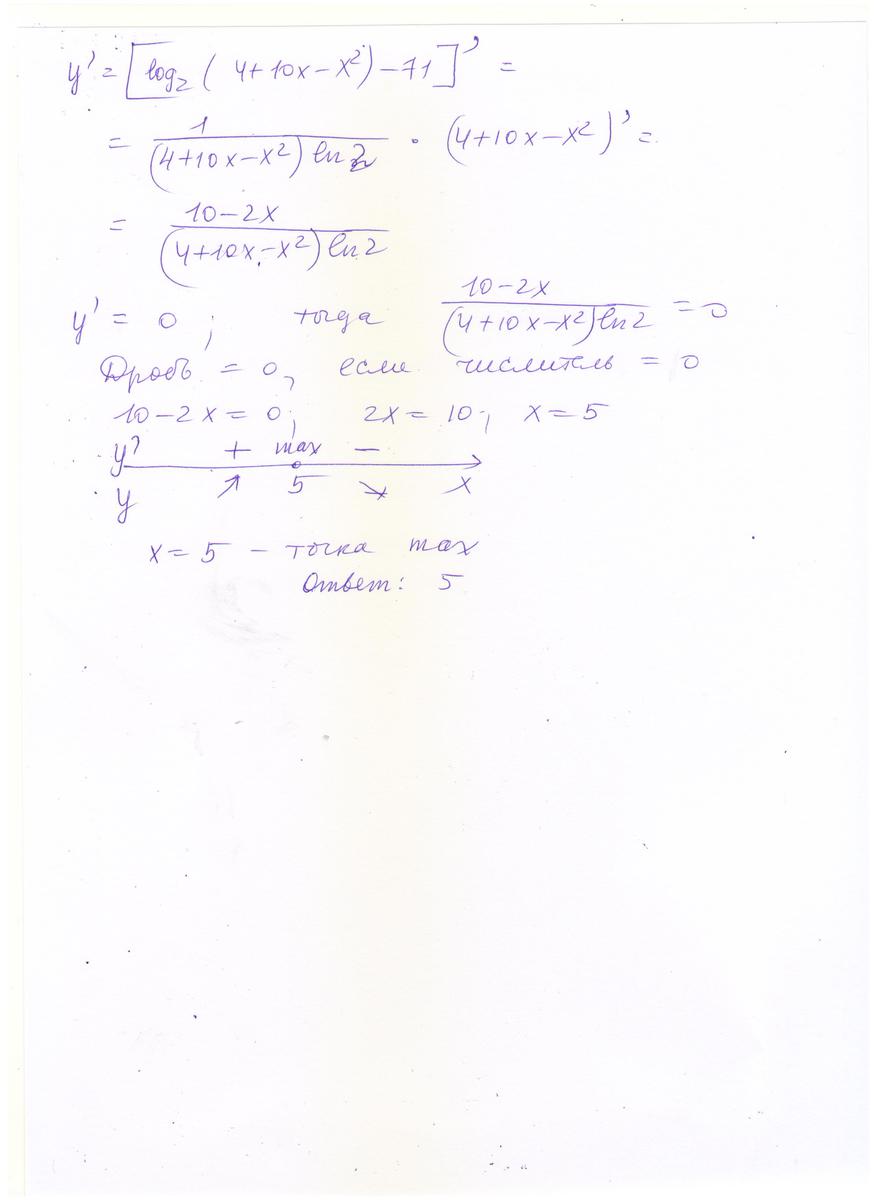 y' = [log₂(4+10x−x²)−71]' =
= 1/((4+10x−x²) ln 2) · (4+10x−x²)' =
= (10−2x)/((4+10x−x²) ln 2)
y' = 0; тогда (10−2x)/((4+10x−x²) ln 2) = 0
Дробь = 0, если числитель = 0
10−2x = 0; 2x = 10; x = 5
y' + max −
y ↗ 5 ↘ x
x = 5 − точка max
Ответ: 5